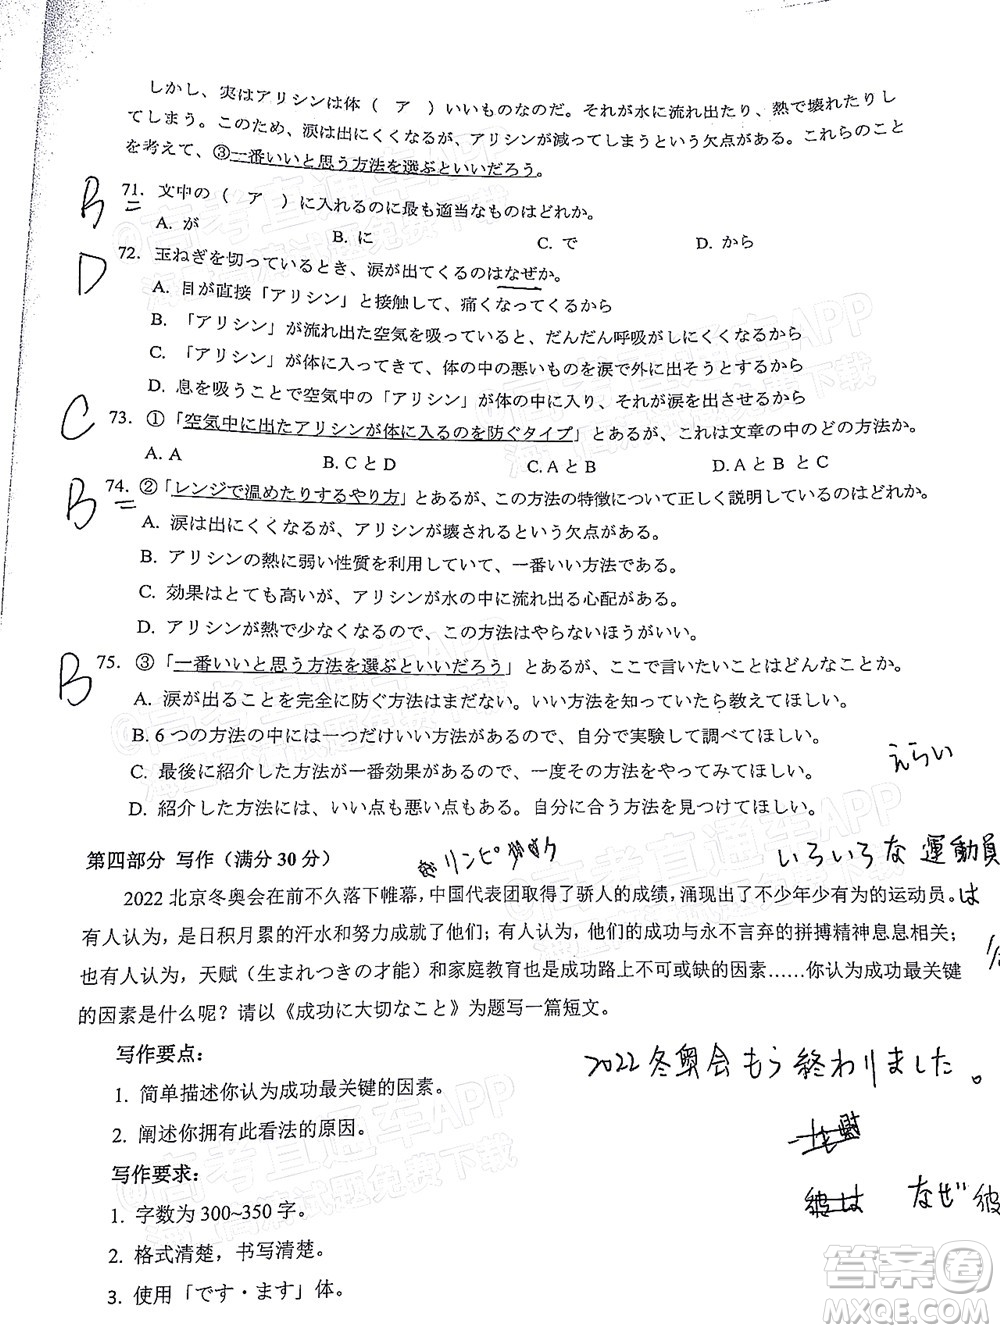 しかし、実はアリシンは体（　ア　）いいものなのだ。それが水に流れ出たり、熱で壊れたりし
てしまう。このため、涙は出にくくなるが、アリシンが減ってしまうという欠点がある。これらのこと
を考えて、③一番いいと思う方法を選ぶといいだろう。
B 71. 文中の（　ア　）に入れるのに最も適当なものはどれか。
A. が B. に C. で D. から
D 72. 玉ねぎを切っているとき、涙が出てくるのはなぜか。
A. 目が直接「アリシン」と接触して、痛くなってくるから
B. 「アリシン」が流れ出た空気を吸っていると、だんだん呼吸がしにくくなるから
C. 「アリシン」が体に入ってきて、体の中の悪いものを涙で外に出そうとするから
D. 息を吸うことで空気中の「アリシン」が体の中に入り、それが涙を出させるから
C 73. ①「空気中に出たアリシンが体に入るのを防ぐタイプ」とあるが、これは文章の中のどの方法か。
A. A B. C と D C. A と C D. A と B と C
B 74. ②「レンジで温めたりするやり方」とあるが、この方法の特徴について正しく説明しているのはどれか。
A. 涙は出にくくなるが、アリシンが壊されるという欠点がある。
B. アリシンの熱に弱い性質を利用していて、一番いい方法である。
C. 効果はとても高いが、アリシンが水の中に流れ出る心配がある。
D. アリシンが熱で少なくなるので、この方法はやらないほうがいい。
B 75. ③「一番いいと思う方法を選ぶといいだろう」とあるが、ここで言いたいことはどんなことか。
A. 涙が出ることを完全に防ぐ方法はまだない。いい方法を知っていたら教えてほしい。
B. 6 つの方法の中には一つだけいい方法があるので、自分で実験して調べてほしい。
えらい
C. 最後に紹介した方法が一番効果があるので、一度その方法をやってみてほしい。
D. 紹介した方法には、いい点も悪い点もある。自分に合う方法を見つけてほしい。
第四部分 写作（满分 30 分）
リンピック
いろいろな 運動員
2022 北京冬奥会在前不久落下帷幕，中国代表团取得了骄人的成绩，涌现出了不少年少有为的运动员。
は
有人认为，是日积月累的汗水和努力成就了他们；有人认为，他们的成功与永不言弃的拼搏精神息息相关；
也有人认为，天赋（生まれつきの才能）和家庭教育也是成功路上不可或缺的因素……你认为成功最关键
的因素是什么呢？请以《成功に大切なこと》为题写一篇短文。
写作要点：
2022冬奥会もう終わりました。
1. 简单描述你认为成功最关键的因素。
2. 阐述你拥有此看法的原因。
写作要求：
彼は なぜ彼
1. 字数为 300~350 字。
2. 格式清楚，书写清楚。
3. 使用「です・ます」体。
@高考直通车APP
海量高清试题免费下载
答案圈
MXQE.COM